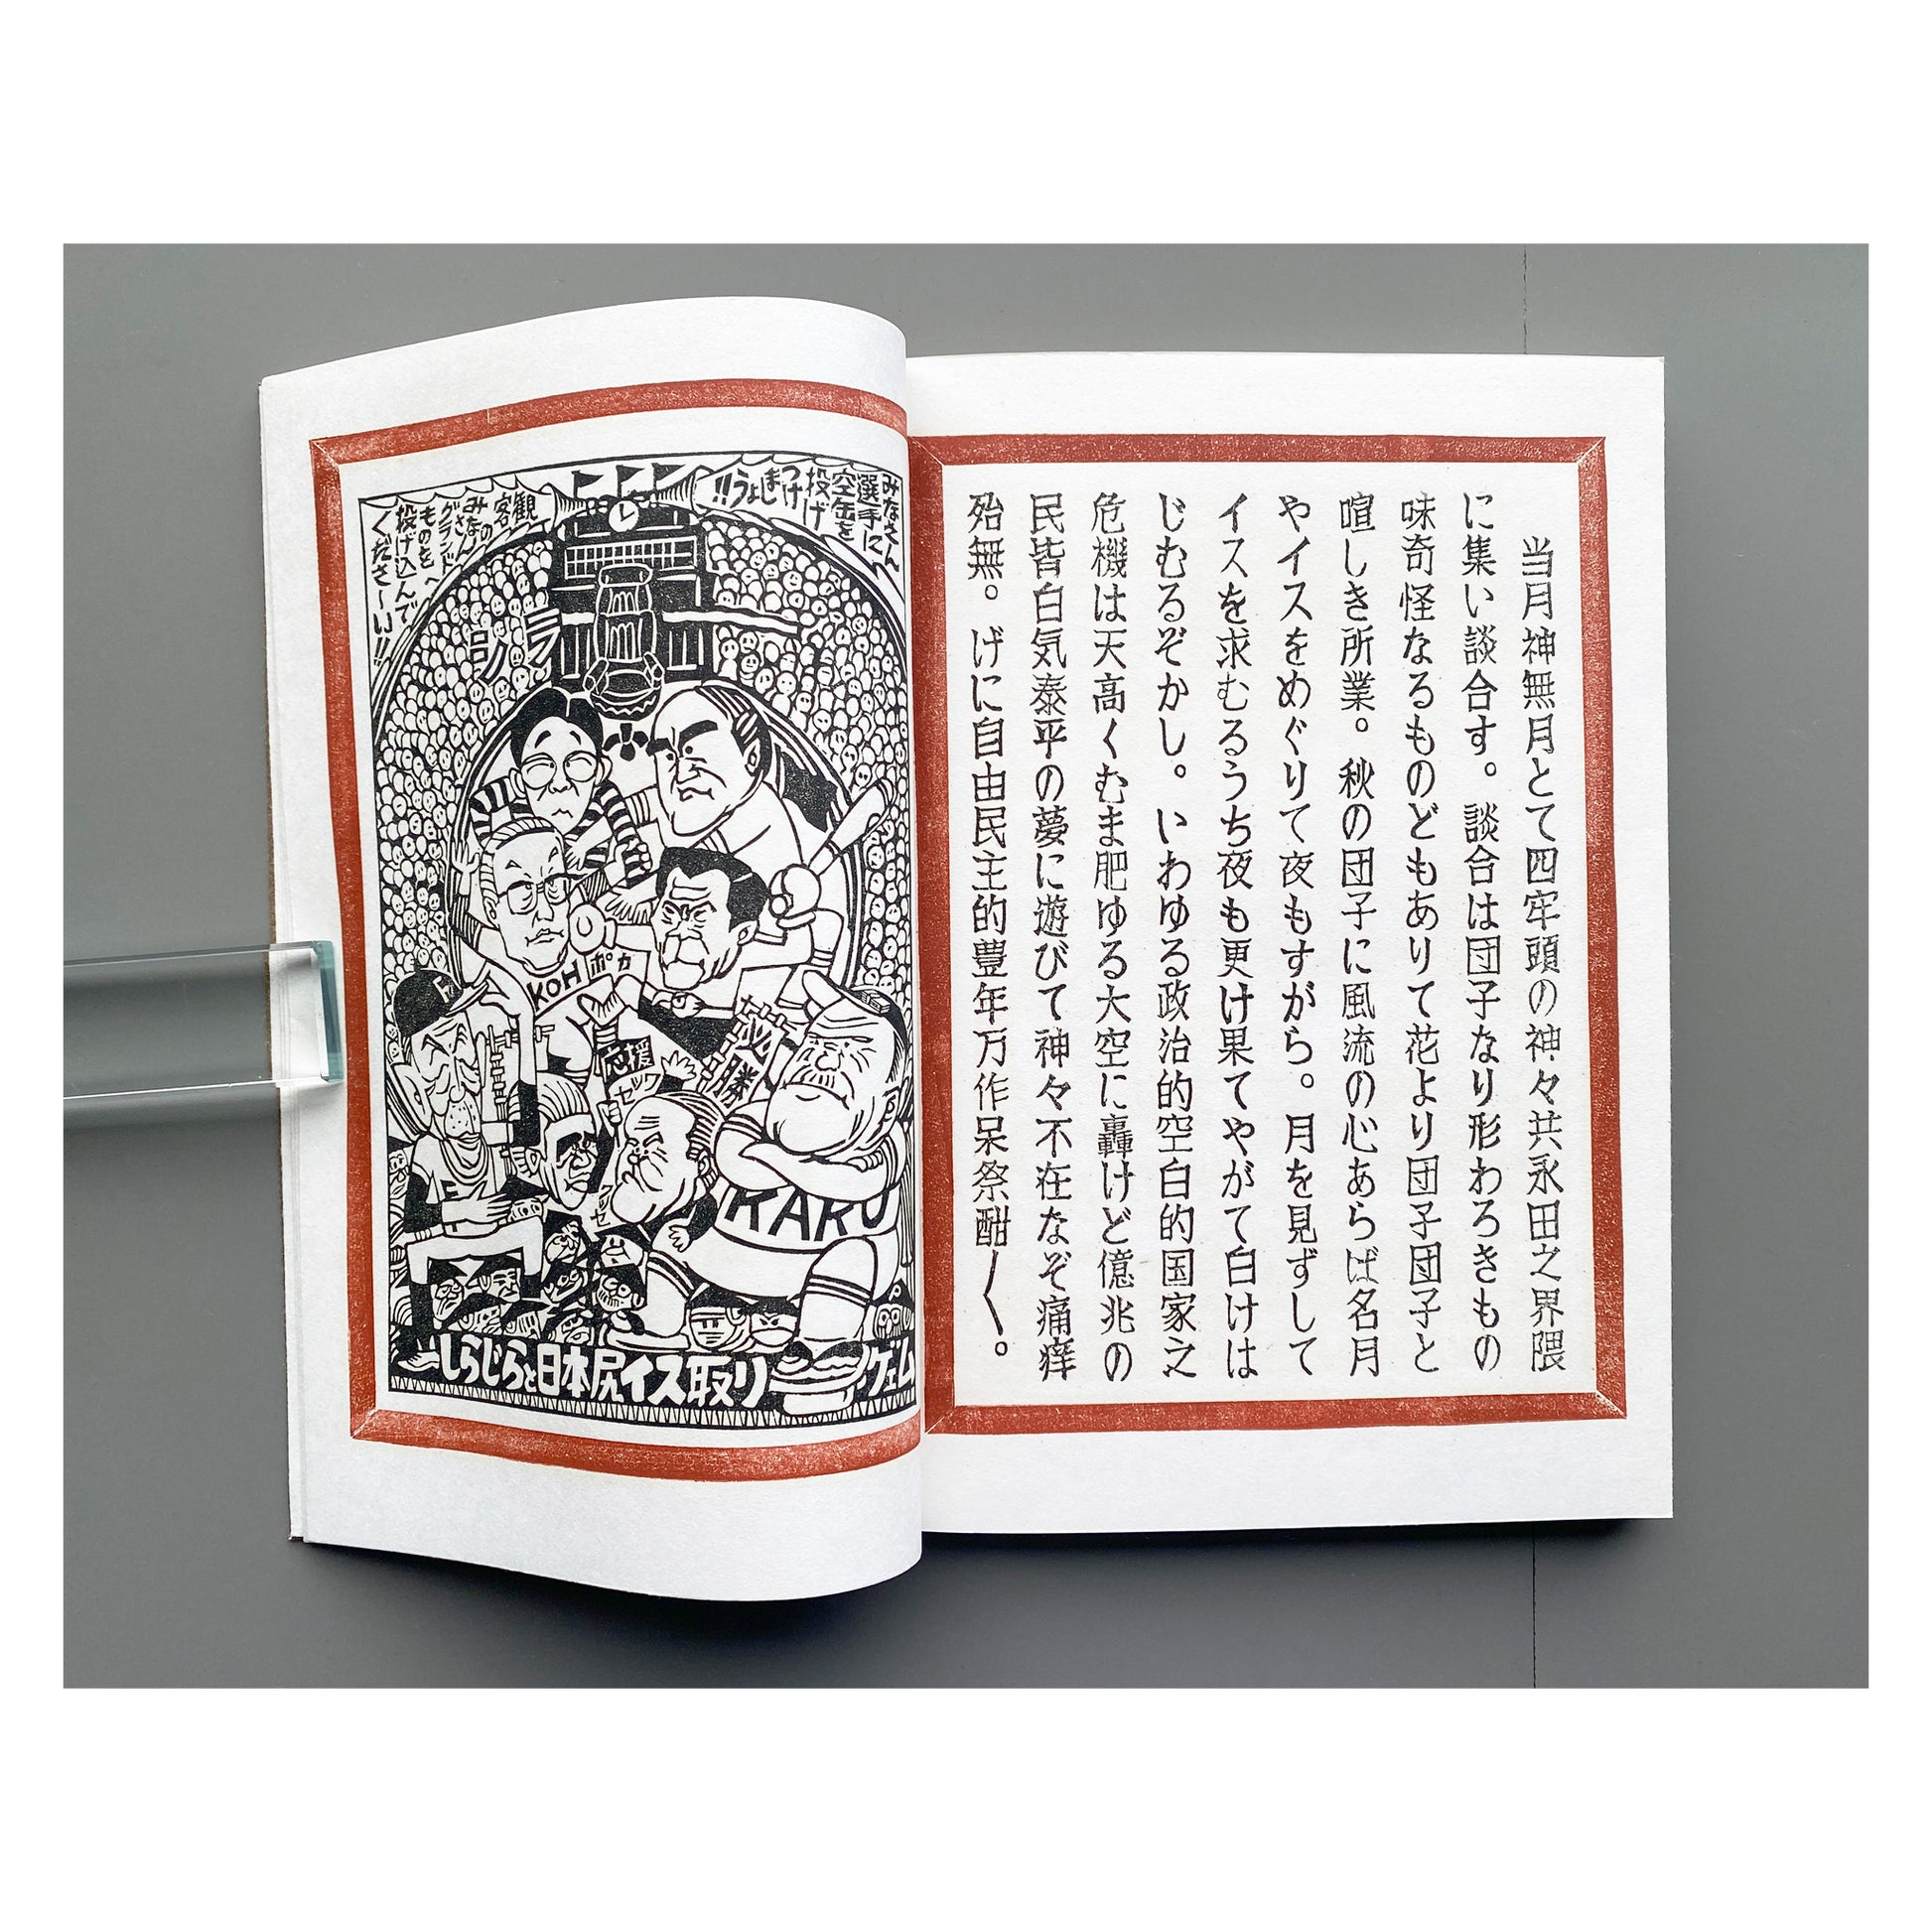 当月神無月とて四牢頭の神々共永田之界隈
に集い談合す。談合は団子なり形わろきもの
味奇怪なるものどもありて花より団子団子と
喧しき所業。秋の団子に風流の心あらば名月
やイスをめぐりて夜もすがら。月を見ずして
イスを求むるうち夜も更け果てやがて白けは
じむるぞかし。いわゆる政治的空白的国家之
危機は天高くむま肥ゆる大空に轟けど億兆の
民皆白気泰平の夢に遊びて神々不在なぞ痛痒
殆無。げに自由民主的豊年万作呆祭酣〱。
みなさん
選手に
空缶を
投げ
つけ
ましょう!!
観客
のみなさん
グランドへ
ものを
投げ込んで
くださーい!!
KOH
ポカ
応援
セッツ
必勝
KARU
しらじらと日本尻イス取りゲェム